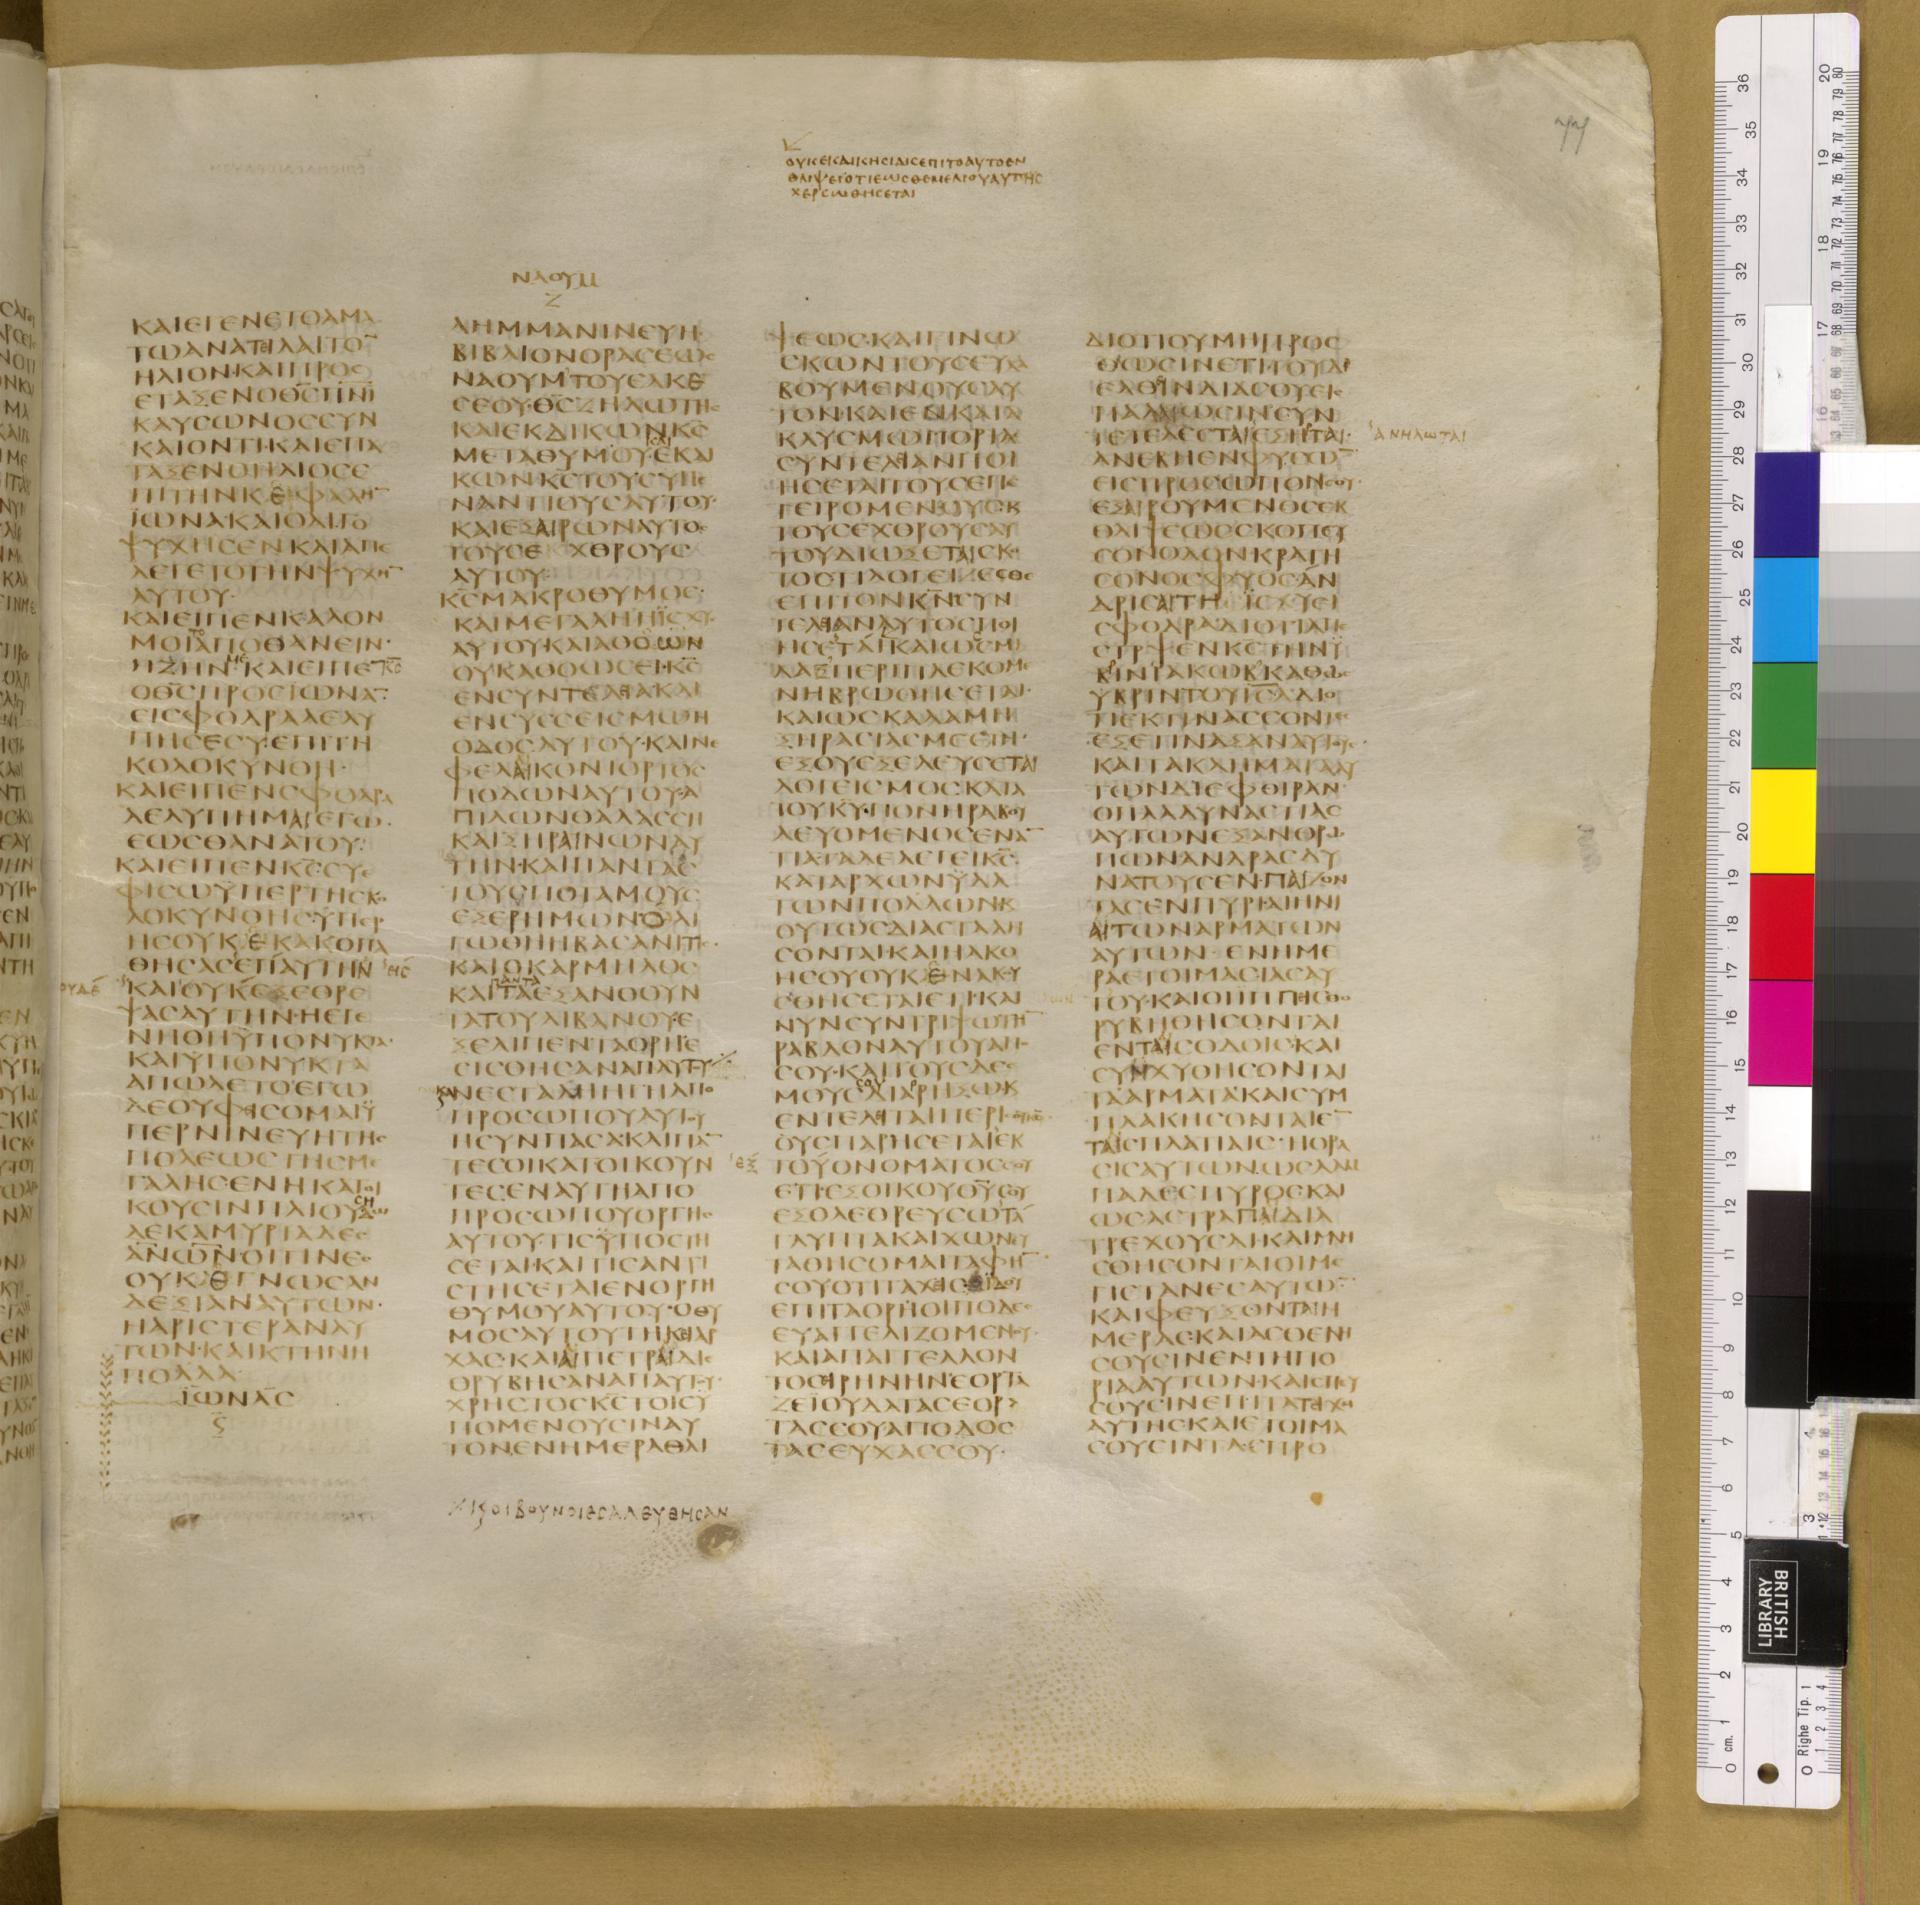 ΟΥΚΕΚΔΙΚΗCΙΔΙCΕΠΙΤΟΑΥΤΟΕΝ
ΘΛΙΨΕΙΟΤΙΕΩCΘΕΜΕΛΙΟΥΑΥΤΗC
ΧΕΡCΩΘΗCΕΤΑΙ
ΚΑΙΕΓΕΝΕΤΟΑΜΑ
ΤΩΑΝΑΤΙΛΑΙΤΟ̅
ΗΛΙΟΝ·ΚΑΙΠΡΟC
ΕΤΑΞΕΝΟΘ̅C̅ΠΝΙ
ΚΑΥCΩΝΟCCΥΝ
ΚΑΙΟΝΤΙ·ΚΑΙΕΠΑ
ΤΑΞΕΝΟΗΛΙΟCΕ
ΠΙΤΗΝΚΕΦΑΛΗ̅
ΙΩΝΑ·ΚΑΙΟΛΙΓΟ
ΨΥΧΗCΕΝΚΑΙΑΠΕ
ΛΕΓΕΤΟΤΗΝΨΥΧΗ̅
ΑΥΤΟΥ·
ΚΑΙΕΙΠΕΝΚΑΛΟΝ
ΜΟΙΑΠΟΘΑΝΕΙΝ·
ΗΖΗΝΜΕ·ΚΑΙΕΙΠΕΚ̅C̅
ΟΘ̅C̅ΠΡΟCΙΩΝΑ·
ΕΙCΦΟΔΡΑΛΕΛΥ
ΠΗCΕCΥ·ΕΠΙΤΗ
ΚΟΛΟΚΥΝΘΗ·
ΚΑΙΕΙΠΕΝCΦΟΔΡΑ
ΛΕΛΥΠΗΜΑΙΕΓΩ
ΕΩCΘΑΝΑΤΟΥ·
ΚΑΙΕΙΠΕΝΚ̅C̅·CΥΕ
ΦΙCΩΫΠΕΡΤΗCΚΟ
ΛΟΚΥΝΘΗC·ΫΠΕΡ
ΗCΟΥΚΕΚΑΚΟΠΑ
ΘΗCΑCΕΠΑΥΤΗΝ
ΟΥΔΕ
ΚΑΙΟΥΚΕΞΕΘΡΕ
ΨΑCΑΥΤΗΝ·ΗΕΓΕ
ΝΗΘΗΫΠΟΝΥΚΤΑ·
ΚΑΙΫΠΟΝΥΚΤΑ
ΑΠΩΛΕΤΟ·ΕΓΩ
ΔΕΟΥΦΙCΟΜΑΙΫ
ΠΕΡΝΙΝΕΥΗΤΗC
ΠΟΛΕΩCΤΗCΜΕ
ΓΑΛΗCΕΝΗΚΑΤΟΙ
ΚΟΥCΙΝΠΛΙΟΥC
ΔΕΚΑΜΥΡΙΑΔΕC
ΑΝ̅Ω̅Ν̅ΟΙΤΙΝΕC
ΟΥΚΕΓΝΩCΑΝ
ΔΕΞΙΑΝΑΥΤΩΝ·
ΗΑΡΙCΤΕΡΑΝΑΥ
ΤΩΝ·ΚΑΙΚΤΗΝΗ
ΠΟΛΛΑ
ΙΩΝΑC
Ϛ
ΝΑΟΥΜ
Ζ
ΛΗΜΜΑΝΙΝΕΥΗ·
ΒΙΒΛΙΟΝΟΡΑCΕΩC
ΝΑΟΥΜΤΟΥΕΛΚΕ
CΕΟΥ·Θ̅C̅ΖΗΛΩΤΗC
ΚΑΙΕΚΔΙΚΩΝΚ̅C̅
ΜΕΤΑΘΥΜΟΥ·ΕΚΔΙ
ΚΩΝΚ̅C̅ΤΟΥCΥΠΕ
ΝΑΝΤΙΟΥCΑΥΤΟΥ·
ΚΑΙΕΞΑΙΡΩΝΑΥΤΟC
ΤΟΥCΕΧΘΡΟΥC
ΑΥΤΟΥ·
Κ̅C̅ΜΑΚΡΟΘΥΜΟC·
ΚΑΙΜΕΓΑΛΗΗΪCΧΥC
ΑΥΤΟΥ·ΚΑΙΑΘΟΩΝ
ΟΥΚΑΘΟΩCΕΙ·Κ̅C̅
ΕΝCΥΝΤΕΛΕΙΑΚΑΙ
ΕΝCΥCCΕΙCΜΩΗ
ΟΔΟCΑΥΤΟΥ·ΚΑΙΝΕ
ΦΕΛΑΙΚΟΝΙΟΡΤΟC
ΠΟΔΩΝΑΥΤΟΥ·Α
ΠΙΛΩΝΘΑΛΑCCΗ
ΚΑΙΞΗΡΑΙΝΩΝΑΥ
ΤΗΝ·ΚΑΙΠΑΝΤΑC
ΤΟΥCΠΟΤΑΜΟΥC
ΕΞΕΡΗΜΩΝ·ΟΛΙ
ΓΩΘΗΗΒΑCΑΝΙΤΙC·
ΚΑΙΟΚΑΡΜΗΛΟC
ΠΑΝΤΑ
ΚΑΙΤΑΕΞΑΝΘΟΥΝ
ΤΑΤΟΥΛΙΒΑΝΟΥ·Ε
ΞΕΛΙΠΕΝΤΑΟΡΗΕ
CΙCΘΗCΑΝΑΠΑΥΤΟΥ
ΚΑΙΑΝΕCΤΑΛΗΗΓΗΑΠΟ
ΠΡΟCΩΠΟΥΑΥΤΟΥ
ΗCΥΝΠΑCΑ·ΚΑΙΠΑ̅
ΤΕCΟΙΚΑΤΟΙΚΟΥΝ
ΤΕCΕΝΑΥΤΗΑΠΟ
ΠΡΟCΩΠΟΥΟΡΓΗC
ΑΥΤΟΥ·ΤΙCΫΠΟCΤΗ
CΕΤΑΙ·ΚΑΙΤΙCΑΝΤΙ
CΤΗCΕΤΑΙΕΝΟΡΓΗ
ΘΥΜΟΥΑΥΤΟΥ·ΟΘΥ
ΜΟCΑΥΤΟΥΤΗΚΙΑΡ
ΧΑC·ΚΑΙΑΙΠΕΤΡΑΙΔΙΕ
ΘΡΥΒΗCΑΝΑΠΑΥΤΟΥ·
ΧΡΗCΤΟCΚ̅C̅ΤΟΙCΫ
ΠΟΜΕΝΟΥCΙΝΑΥ
ΤΟΝ·ΕΝΗΜΕΡΑΘΛΙ
ΚΑΙΟΙΒΟΥΝΟΙΕCΑΛΕΥΘΗCΑΝ
ΨΕΩC·ΚΑΙΓΙΝΩ
CΚΩΝΤΟΥCΕΥΛΑ
ΒΟΥΜΕΝΟΥCΑΥ
ΤΟΝ·ΚΑΙΕΝΚΑΤΑ
ΚΑΥCΜΩΠΟΡΙΑC
CΥΝΤΕΛΙΑΝΠΟΙ
ΗCΕΤΑΙΤΟΥCΕΠΕ
ΓΕΙΡΟΜΕΝΟΥC·Κ
ΤΟΥCΕΧΘΡΟΥCΑΥ
ΤΟΥΔΙΩΞΕΤΑΙCΚΟ
ΤΟC·ΤΙΛΟΓΕΙΖΕCΘΕ
ΕΠΙΤΟΝΚ̅Ν̅CΥΝ
ΤΕΛΙΑΝΑΥΤΟCΠΟΙ
ΗCΕΤΑΙ·ΚΑΙΩCCΜΙ
ΛΑΞΠΕΡΙΠΛΕΚΟΜΕ
ΝΗΒΡΩΘΗCΕΤΑΙ·
ΚΑΙΩCΚΑΛΑΜΗ
ΞΗΡΑCΙΑCΜΕCΤΗ·
ΕΞΟΥΕΞΕΛΕΥCΕΤΑΙ
ΛΟΓΕΙCΜΟCΚΑΤΑ
ΤΟΥΚ̅Υ̅·ΠΟΝΗΡΑΒΟΥ
ΛΕΥΟΜΕΝΟCΕΝΑ̅
ΤΙΑ·ΤΑΔΕΛΕΓΕΙΚ̅C̅·
ΚΑΤΑΡΧΩΝΫΔΑ
ΤΩΝΠΟΛΛΩΝ·Κ
ΟΥΤΩCΔΙΑCΤΑΛΗ
CΟΝΤΑΙ·ΚΑΙΗΑΚΟ
ΗCΟΥΟΥΚΕΝΑΚΟΥ
CΘΗCΕΤΑΙΕΤΙ·ΚΑΙ
ΝΥΝCΥΝΤΡΙΨΩΤΗ̅
ΡΑΒΔΟΝΑΥΤΟΥΑΠΟ
CΟΥ·ΚΑΙΤΟΥCΔΕC
ΜΟΥCCΟΥΔΙΑΡΗΞΩ·Κ
ΕΝΤΕΛΙΤΑΙΠΕΡΙ
ΟΥCΠΑΡΗCΕΤΑΙΕΚ
ΕΞ
ΤΟΥΟΝΟΜΑΤΟCCΟΥ
ΕΤΙ·ΕΞΟΙΚΟΥΘ̅Υ̅CΟΥ
ΕΞΟΛΕΘΡΕΥCΩΤΑ
ΓΛΥΠΤΑΚΑΙΧΩΝΕΥ
ΤΑΘΗCΟΜΑΙΤΑΦΗ̅
CΟΥΟΤΙΤΑΧΕΙC·ΪΔΟΥ
ΕΠΙΤΑΟΡΗΟΙΠΟΔΕC
ΕΥΑΓΓΕΛΙΖΟΜΕΝΟΥ·
ΚΑΙΑΠΑΓΓΕΛΛΟΝ
ΤΟCΙΡΗΝΗΝ·ΕΟΡΤΑ
ΖΕΪΟΥΔΑΤΑCΕΟΡ
ΤΑCCΟΥΑΠΟΔΟC
ΤΑCΕΥΧΑCCΟΥ·
ΔΙΟΤΙΟΥΜΗΠΡΟC
ΘΩCΙΝΕΤΙΤΟΥΔΙ
ΕΛΘΙΝΔΙΑCΟΥΕΙC
ΠΑΛΑΙΩCΙΝ·CΥΝ
ΤΕΤΕΛΕCΤΑΙΕΞΗΡΤΑΙ·
ΑΝΗΛΩΤΑΙ
ΑΝΕΒΗΕΝΦΥCΩ̅
ΕΙCΠΡΟCΩΠΟΝCΟΥ·
ΕΞΑΙΡΟΥΜΕΝΟCΕΚ
ΘΛΙΨΕΩC·CΚΟΠΕΥ
CΟΝΟΔΟΝΚΡΑΤΗ
CΟΝΟCΦΥΟC·ΑΝ
ΔΡΙCΑΙΤΗΪCΧΥΕΙ
CΦΟΔΡΑΔΙΟΤΙΑΠΕ
CΤΡΨΕΝΚ̅C̅ΤΗΝΫ
ΒΡΙΝΪΑΚΩΒΚΑΘΩC
ΥΒΡΙΝΤΟΥΙ̅C̅Λ̅·ΔΙΟ
ΤΙΕΚΤΙΝΑCCΟΝΤΕC
ΕΞΕΤΙΝΑΞΑΝΑΥΤΟΥC·
ΚΑΙΤΑΚΛΗΜΑΤΑΑΥ
ΤΩΝΔΙΕΦΘΙΡΑΝ·
ΟΠΛΑΔΥΝΑCΤΙΑC
ΑΥΤΩΝΕΞΑΝΘΡΩ
ΠΩΝΑΝΔΡΑCΔΥ
ΝΑΤΟΥCΕΝΠΑΙΖΟΝ
ΤΑCΕΝΠΥΡΙ·ΑΙΗΝΙ
ΑΙΤΩΝΑΡΜΑΤΩΝ
ΑΥΤΩΝ·ΕΝΗΜΕ
ΡΑΕΤΟΙΜΑCΙΑCΑΥ
ΤΟΥ·ΚΑΙΟΙΪΠΠΙCΘΟ
ΡΥΒΗΘΗCΟΝΤΑΙ
ΕΝΤΑΙCΟΔΟΙC·ΚΑΙ
CΥΝΧΥΘΗCΟΝΤΑΙ
ΤΑΑΡΜΑΤΑ·ΚΑΙCΥΜ
ΠΛΑΚΗCΟΝΤΑΙΕ̅
ΤΑΙCΠΛΑΤΙΑΙC·ΗΟΡΑ
CΙCΑΥΤΩΝ·ΩCΛΑΜ
ΠΑΔΕCΠΥΡΟC·ΚΑΙ
ΩCΑCΤΡΑΠΑΙΔΙΑ
ΤΡΕΧΟΥCΑΙ·ΚΑΙΜΝΗ
CΘΗCΟΝΤΑΙΟΙΜΕ
ΓΙCΤΑΝΕCΑΥΤΩ̅·
ΚΑΙΦΕΥΞΟΝΤΑΙΗ
ΜΕΡΑC·ΚΑΙΑCΘΕΝΗ
CΟΥCΙΝΕΝΤΗΠΟ
ΡΙΑΑΥΤΩΝ·ΚΑΙCΠΕΥ
CΟΥCΙΝΕΠΙΤΑΤΙΧΗ
ΑΥΤΗC·ΚΑΙΕΤΟΙΜΑ
CΟΥCΙΝΤΑCΠΡΟ
BRITISH
LIBRARY
0 cm. 1
0 Righe Tip. 1